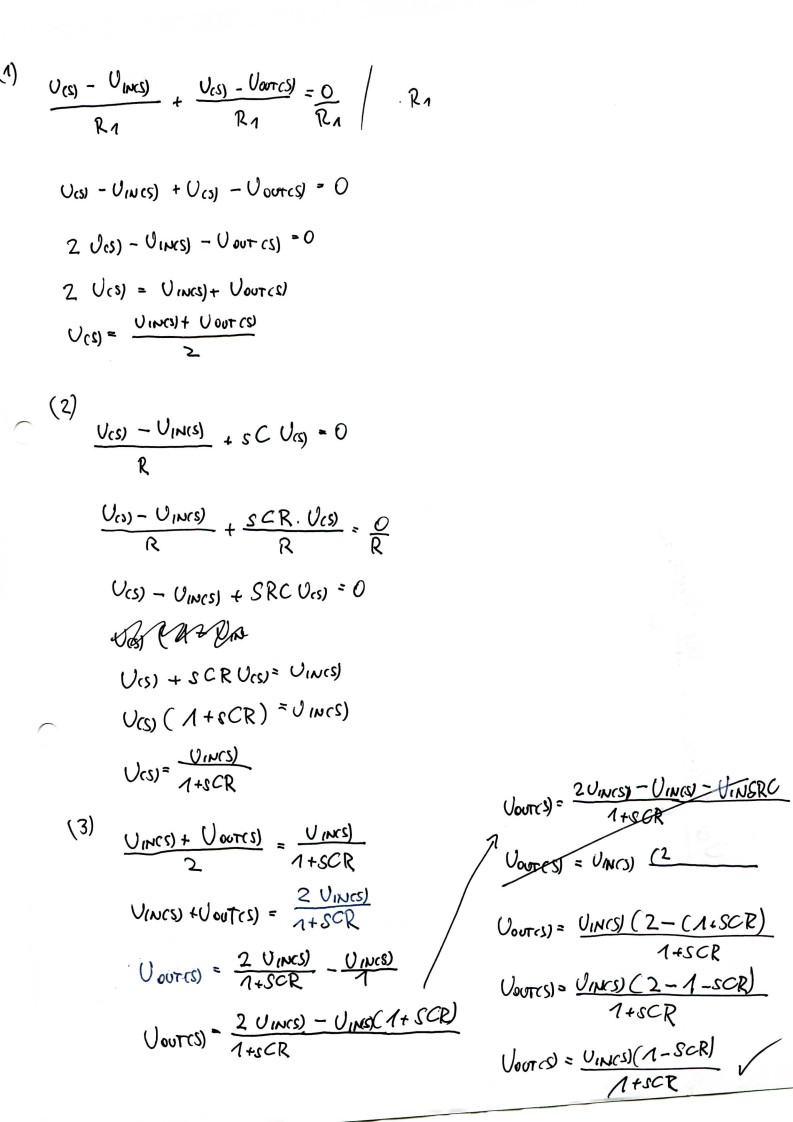 (1) (U(s) - UIN(s))/R1 + (U(s) - UOUT(s))/R1 = 0/R1 | . R1
U(s) - UIN(s) + U(s) - UOUT(s) = 0
2 U(s) - UIN(s) - UOUT(s) = 0
2 U(s) = UIN(s) + UOUT(s)
U(s) = (UIN(s) + UOUT(s))/2
(2)
(U(s) - UIN(s))/R + sC U(s) = 0
(U(s) - UIN(s))/R + (sCR . U(s))/R = 0/R
U(s) - UIN(s) + SRC U(s) = 0
U(s) + sCR U(s) = UIN(s)
U(s) (1+sCR) = UIN(s)
U(s) = UIN(s)/(1+sCR)
(3) (UIN(s) + UOUT(s))/2 = UIN(s)/(1+SCR)
UIN(s) + UOUT(s) = 2 UIN(s)/(1+SCR)
UOUT(s) = 2 UIN(s)/(1+SCR) - UIN(s)/1
UOUT(s) = (2 UIN(s) - UIN(s)(1+SCR))/(1+sCR)
UOUT(s) = (2UIN(s) - UIN(s) - UINSRC)/(1+SCR)
UOUT(s) = UIN(s) (2
UOUT(s) = UIN(s) (2-(1+SCR)/(1+SCR)
UOUT(s) = UIN(s) (2-1-sCR)/(1+SCR)
UOUT(s) = UIN(s)(1-SCR)/(1+SCR) ✓